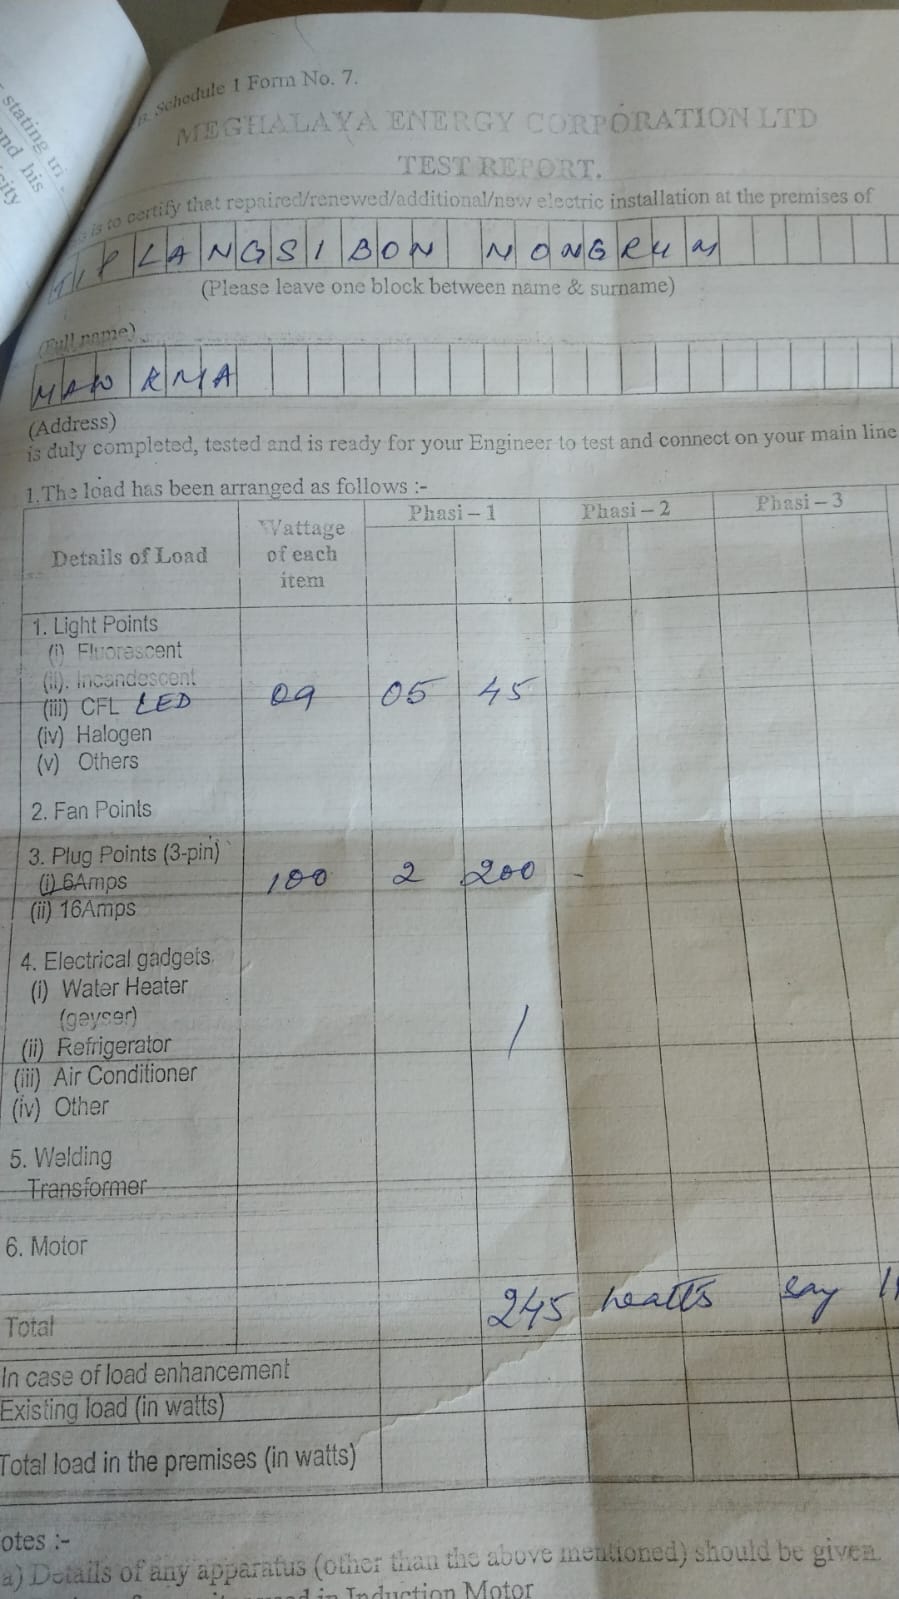 stating
and his
city
B. Schedule 1 Form No. 7.
MEGHALAYA ENERGY CORPORATION LTD
TEST REPORT.
is to certify that repaired/renewed/additional/new electric installation at the premises of
LANGSIBON NONGRUM
(Please leave one block between name & surname)
(Full name)
MAW KMA
(Address)
is duly completed, tested and is ready for your Engineer to test and connect on your main line
1.The load has been arranged as follows :-
Details of Load Wattage of each item Phasi – 1 Phasi – 2 Phasi – 3
1. Light Points
(i) Fluorescent
(ii). Incandescent
(iii) CFL LED 09 05 45
(iv) Halogen
(v) Others
2. Fan Points
3. Plug Points (3-pin)
(i) 6Amps 100 2 200 -
(ii) 16Amps
4. Electrical gadgets
(i) Water Heater
(geyser)
(ii) Refrigerator
(iii) Air Conditioner
(iv) Other
5. Welding
Transformer
6. Motor
Total 245 watts say
In case of load enhancement
Existing load (in watts)
Total load in the premises (in watts)
otes :-
a) Details of any apparatus (other than the above mentioned) should be given.
in Induction Motor